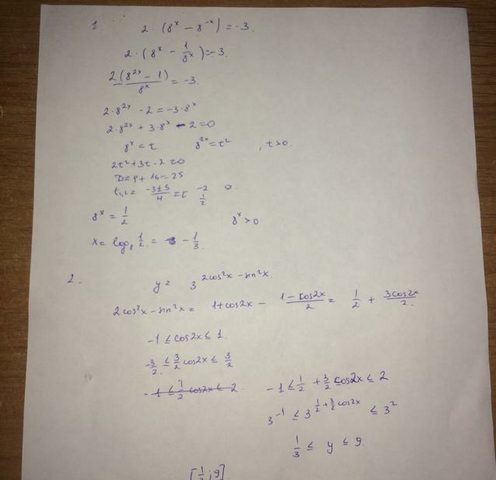 1 2 · (8^x − 8^-x) = −3.
2 · (8^x − 1/8^x) = −3.
2(8^2x − 1)/8^x = −3
2·8^2x − 2 = −3·8^x
2·8^2x + 3·8^x − 2 = 0
8^x = t 8^2x = t² , t>0.
2t² + 3t − 2 = 0
D = 9 + 16 = 25
t1,2 = (−3±5)/4 = [ −2 1/2
8^x = 1/2 8^x > 0
x = log8 1/2 = − 1/3.
2. y = 3^(2cos²x − sin²x)
2cos²x − sin²x = 1 + cos2x − (1−cos2x)/2 = 1/2 + 3cos2x/2.
−1 ≤ cos2x ≤ 1
−3/2 ≤ 3/2 cos2x ≤ 3/2
−1 ≤ 1/2 + 3/2 cos2x ≤ 2
3^-1 ≤ 3^(1/2 + 3/2 cos2x) ≤ 3^2
1/3 ≤ y ≤ 9
[1/3; 9]